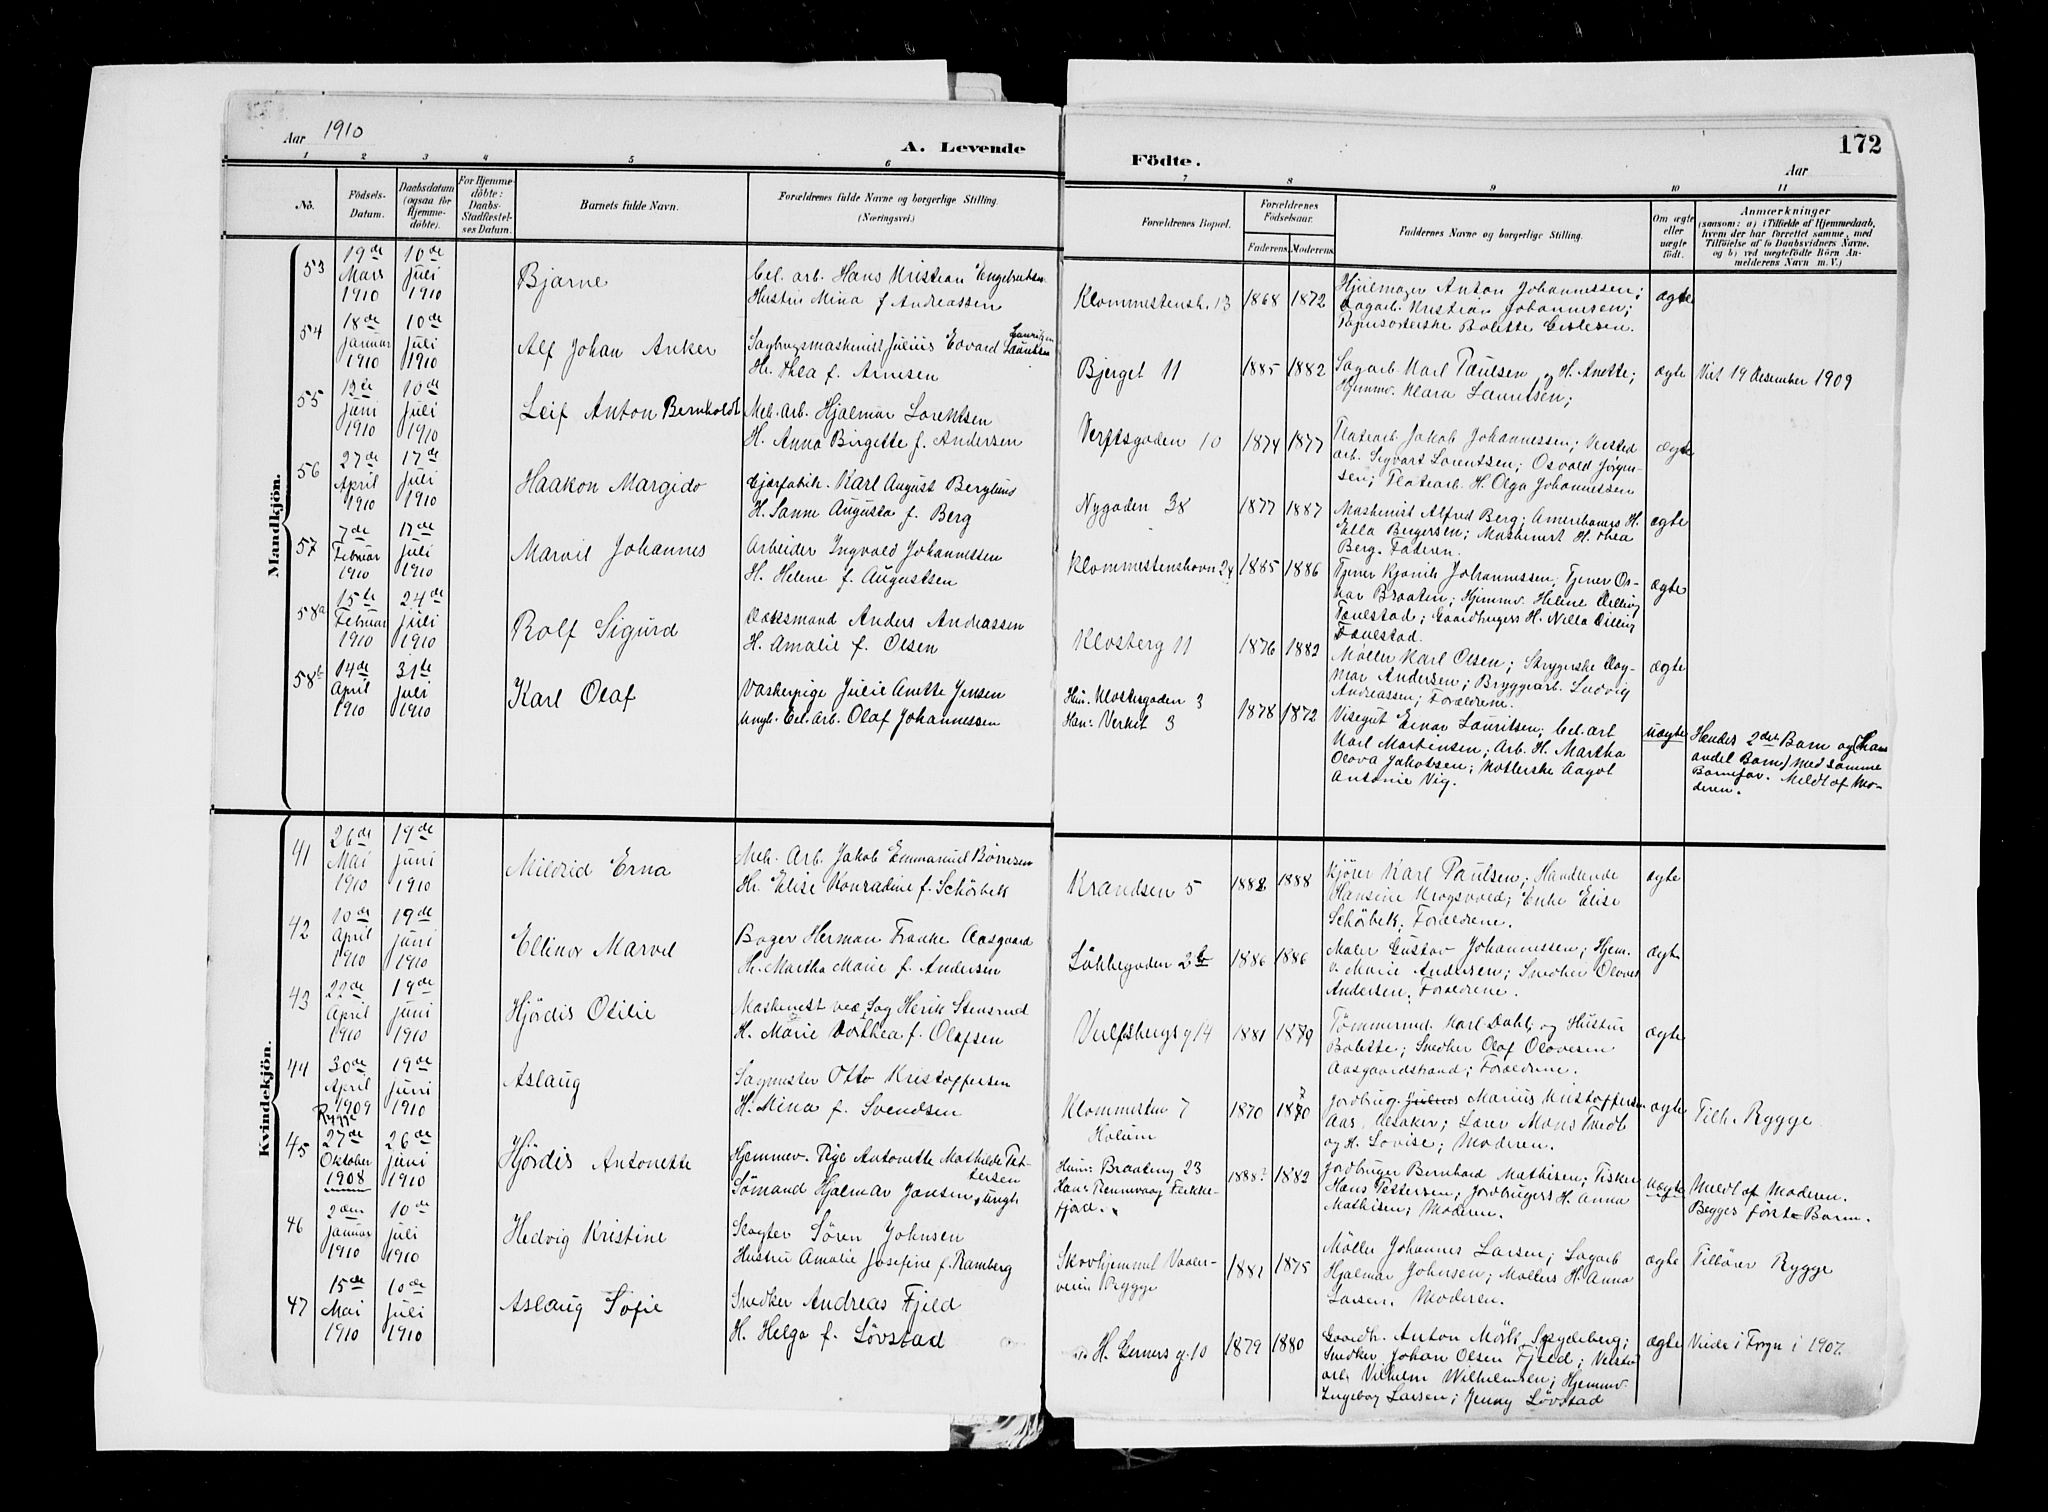 Aar 1910
A. Levende
Födte.
Aar
172
1 2 3 4 5 6 7 8 9 10 11
No.
Födsels-Datum.
Daabsdatum (ogsaa for Hjemmedöbte).
For Hjemmedöbte: Daabs-Stadfæstelses Datum.
Barnets fulde Navn.
Forældrenes fulde Navne og borgerlige Stilling. (Næringsvei.)
Forældrenes Bopæl.
Forældrenes Födselsaar.
Faderens. Moderens.
Faddernes Navne og borgerlige Stilling.
Om ægte eller uægte födt.
Anmærkninger
(saasom: a) i Tilfælde af Hjemmedaab,
hvem der har forrettet samme, med
Tilföielse af to Daabsvidners Navne.
og b) ved uægtefödte Börn Anmelderens Navn m. V.)
Mandkjön.
53
19de Mars 1910
10de Juli 1910
Bjarne
Cel. arb. Hans Kristian Engebretsen
Hustru Mina f. Andreassen
Klommestensh. 13
1868 1872
Hjulmager Anton Johannessen;
Sagarb. Kristian Johannesen;
Papirsorterske Bolette
ægte
54
18de Januar 1910
10de Juli 1910
Alf Johan Anker
Sagbrugsmaskinist Julius Edvard Lauritsen
H. Thea f. Arnesen
Bjerget 11
1885 1882
Sagarb. Karl Paulsen og H. Anette;
Hjemmv. Klara Lauritsen;
ægte
Viet 19 Desember 1909
55
Juni 1910
10de Juli 1910
Leif Anton Bernholdt
Mek. Arb. Hjalmar Lorentsen
H. Anna Birgitte f. Andersen
Verftsgaden 10
1874 1877
Jakob Johannessen;
arb. Sigvart Lorentsen; Osvald Jørgensen;
H. Olga Johannessen
ægte
56
27de April 1910
17de Juli 1910
Haakon Margido
Karl August Berglund
H. Sanne Augusta f. Berg
Nygaden 38
1877 1887
Maskinist Alfred Berg; Amerikaners H.
Ella Birgersen; Maskinist H. Thea
Berg. Faderen.
ægte
57
7de Februar 1910
17de Juli 1910
Marvil Johannes
Arbeider Ingvald Johannessen
H. Helene f. Augustsen
Klommestenshovn 24
1885 1886
Tjener Johannessen; Tjener Oskar
Braaten; Hjemmv. Helene Dilling
Taulstad; Gaardbrugers H. Nilla Dilling
Taulstad.
ægte
58a
15de Februar 1910
24de Juli 1910
Rolf Sigurd
Anders Andreassen
H. Amalie f. Olsen
Klosberg 11
1876 1882
Møller Karl Olsen; Strygerske Dagmar
Andersen; Bryggeriarb. Ludvig
Andreassen; Forældrene.
ægte
58b
14de April 1910
31te Juli 1910
Karl Olaf
Vaskepige Julie Anette Jensen
Ungk. Cel. Arb. Olaf Johannessen
Hun: Klostergaden 3
Han: Verket 3
1878 1872
Visegut Einar Lauritsen; Cel. arb
Karl Martinsen; Arb. H. Martha
Olova Jakobsen; Aagot
Antonie Vig.
uægte
Hendes 2det Barn og (Hans
andet Barn) med samme
Barnefar. Meldt af Moderen.
Kvindekjön.
41
26de Mai 1910
19de Juni 1910
Mildrid Erna
Mek. Arb. Jakob Emmanuel Børresen
H. Elise Konradine f. Schörbek
Krandsen 5
1882 1888
Kjører Karl Paulsen; Handlende
Hansine Krogsvold; Enke Elise
Schörbek; Forældrene.
ægte
42
10de April 1910
19de Juni 1910
Ellinor Marvel
Bager Herman Franke Aasgaard
H. Martha Marie f. Andersen
Løkkegaden 2b
1886 1886
Maler Gustav Johannessen; Hjem.
v. Marie Andersen; Snedker Oluves
Andersen; Forældrene.
ægte
43
22de April 1910
19de Juni 1910
Hjørdis Otilie
Maskinist ved Sag Henrik Stensrud
H. Marie Dorthea f. Olafsen
Vulfsbergsg 14
1881 1879
Tømmermd. Karl Dahl og Hustru
Bolette; Snedker Olaf Olavesen
Aasgaardstrand; Forældrene.
ægte
44
30de April 1909 Rygge
19de Juni 1910
Aslaug
Sagmester Otto Kristoffersen
H. Mina f. Svendsen
Klommesten 7
Holum
1870 1870
Jordbrug. Marius Kristoffersen
Aas, Lærer Mons Tvedt
og H. Lovise; Moderen.
ægte
Tilh. Rygge
45
27de Oktober 1908
26de Juni 1910
Hjørdis Antonette
Hjemmev. Pige Antonette Mathilde Pettersen
Sømand Hjalmar Jansen, ungk.
Hun: Braateng 23
Han:
1888? 1882
Jordbruger Bernhard Mathisen; Fisker
Hans Pettersen; Jordbrugers H. Anna
Mathisen; Moderen.
uægte
Meldt af Moderen.
Begges første Barn.
46
2den Januar 1910
10de Juli 1910
Hedvig Kristine
Slagter Søren Johnsen
Hustru Amalie Josefine f. Ramberg
Skovhjemmet Vaalerveien
Rygge
1881 1875
Møller Johannes Larsen; Sagarb
Hjalmar Johnsen; Møllers H. Anna
Larsen. Moderen.
ægte
Tilhører Rygge
47
15de Mai 1910
10de Juli 1910
Aslaug Sofie
Snedker Andreas Fjeld
H. Helga f. Løvstad
H. Gerners g. 10
1879 1880
Gaardb. Anton Mörk, Spydeberg;
Snedker Johan Olsen Fjeld;
arb. Vilhelm Wilhelmsen; Hjemmv.
Ingeborg Larsen; Jenny Løvstad
ægte
Viede i 1907.